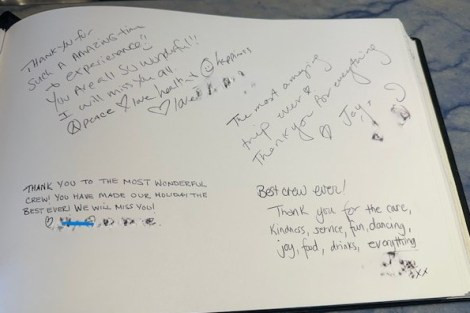 Thank you for
Such a amazing time
to experience!!
You are all so wonderful!!
I will miss you all
peace ♡ love health & ☺ happiness
♡ love
The most amazing
trip ever ♡
Thank you for everything
♡ Joy
THANK YOU TO THE MOST WONDERFUL
CREW! YOU HAVE MADE OUR HOLIDAY THE
BEST EVER! WE WILL MISS YOU!
♡
Best crew ever!
Thank you for the care,
kindness, service, fun, dancing,
joy, food, drinks, everything
xx